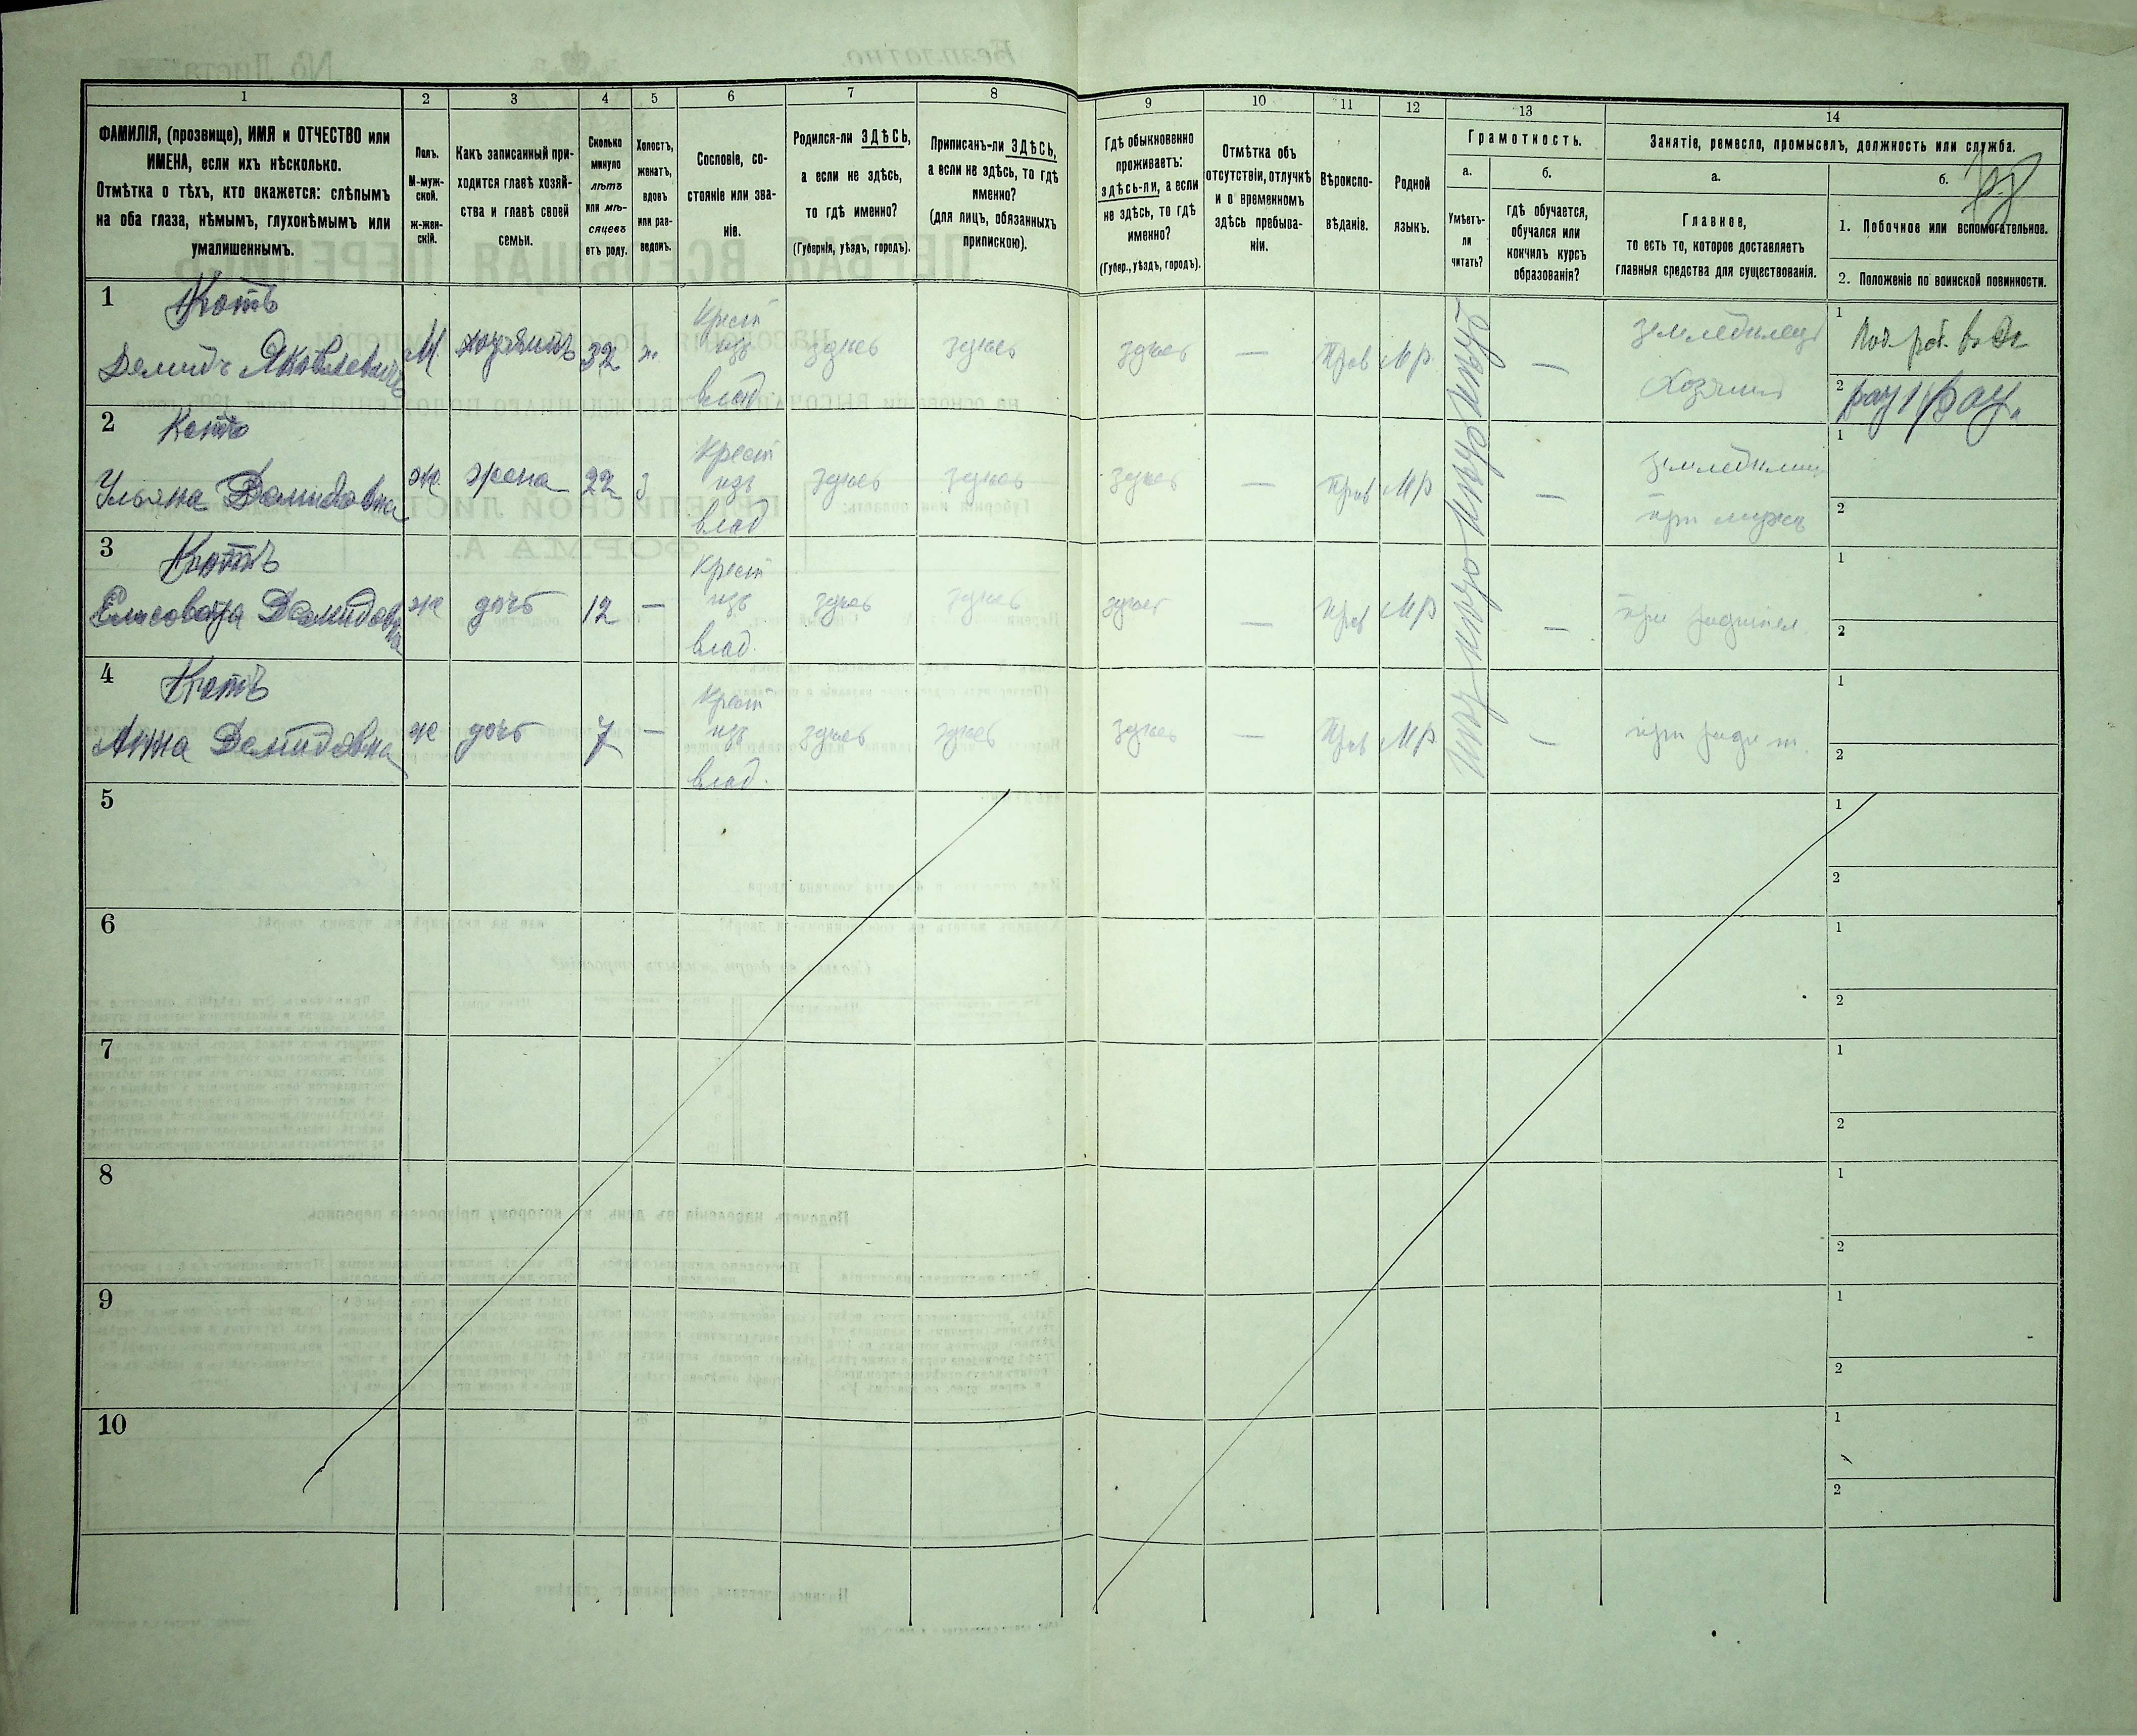 1 2 3 4 5 6 7 8 9 10 11 12 13 14
ФАМИЛІЯ, (прозвище), ИМЯ и ОТЧЕСТВО или
ИМЕНА, если ихъ нѣсколько.
Отмѣтка о тѣхъ, кто окажется: слѣпымъ
на оба глаза, нѣмымъ, глухонѣмымъ или
умалишеннымъ.
Полъ.
М-муж-
ской.
ж-жен-
скій.
Какъ записанный при-
ходится главѣ хозяй-
ства и главѣ своей
семьи.
Сколько
минуло
лѣтъ
или мѣ-
сяцевъ
отъ роду.
Холостъ,
женатъ,
вдовъ
или раз-
веденъ.
Сословіе, со-
стояніе или зва-
ніе.
Родился-ли ЗДѢСЬ,
а если не здѣсь,
то гдѣ именно?
(Губернія, уѣздъ, городъ).
Приписанъ-ли ЗДѢСЬ,
а если не здѣсь, то гдѣ
именно?
(для лицъ, обязанныхъ
припискою).
Гдѣ обыкновенно
проживаетъ:
здѣсь-ли, а если
не здѣсь, то гдѣ
именно?
(Губер., уѣздъ, городъ).
Отмѣтка объ
отсутствіи, отлучкѣ
и о временномъ
здѣсь пребыва-
ніи.
Вѣроиспо-
вѣданіе.
Родной
языкъ.
Грамотность.
а.
Умѣетъ-
ли
читать?
б.
гдѣ обучается,
обучался или
кончилъ курсъ
образованія?
Занятіе, ремесло, промыселъ, должность или служба.
а.
Главное,
то есть то, которое доставляетъ
главныя средства для существованія.
б.
1. Побочное или вспомогательное.
2. Положеніе по воинской повинности.
1 Котъ
Демидъ Яковлевичъ М хозяинъ 32 ж. Крест
изъ
влад. здѣсь здѣсь здѣсь — Прав Мр. — земледѣлецъ
Хозяинъ 1
2
2 Котъ
Ульяна Демидовна ж жена 22 з Крест
изъ
влад здѣсь здѣсь здѣсь — Прав Мр — 
при мужѣ 1
2
3 Котъ
Елисовета Демидовна ж дочь 12 — Крест
изъ
влад. здѣсь здѣсь здѣсь — Прав Мр — при родител. 1
2
4 Котъ
Анна Демидовна ж дочь 7 — Крест
изъ
влад. здѣсь здѣсь здѣсь — Прав Мр. — при 1
2
5 1
2
6 1
2
7 1
2
8 1
2
9 1
2
10 1
2